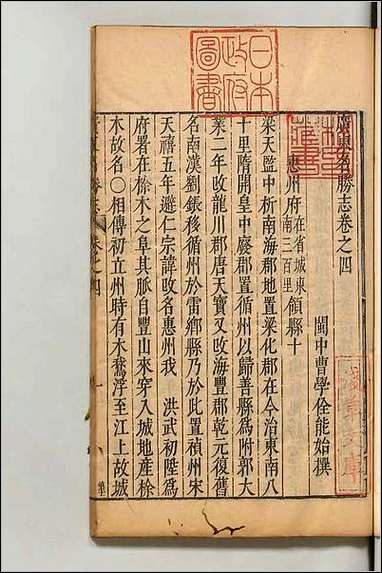 日本
政府
圖書
淺草文庫
廣東名勝志卷之四
閩中曹學佺能始撰
惠州府在省城東南三百里領縣十
梁天監中析南海郡地置梁化郡在今治東南八
十里隋開皇中廢郡置循州以歸善縣為附郭大
業二年改龍川郡唐天寶又改海豐郡乾元復舊
名南漢劉銾移循州於雷鄉縣乃於此置禎州宋
天禧五年避仁宗諱改名惠州我 洪武初陞為
府署在㮀木之阜其脈自豐山來穿入城地産㮀
木故名〇相傳初立州時有木鵞浮至江上故城